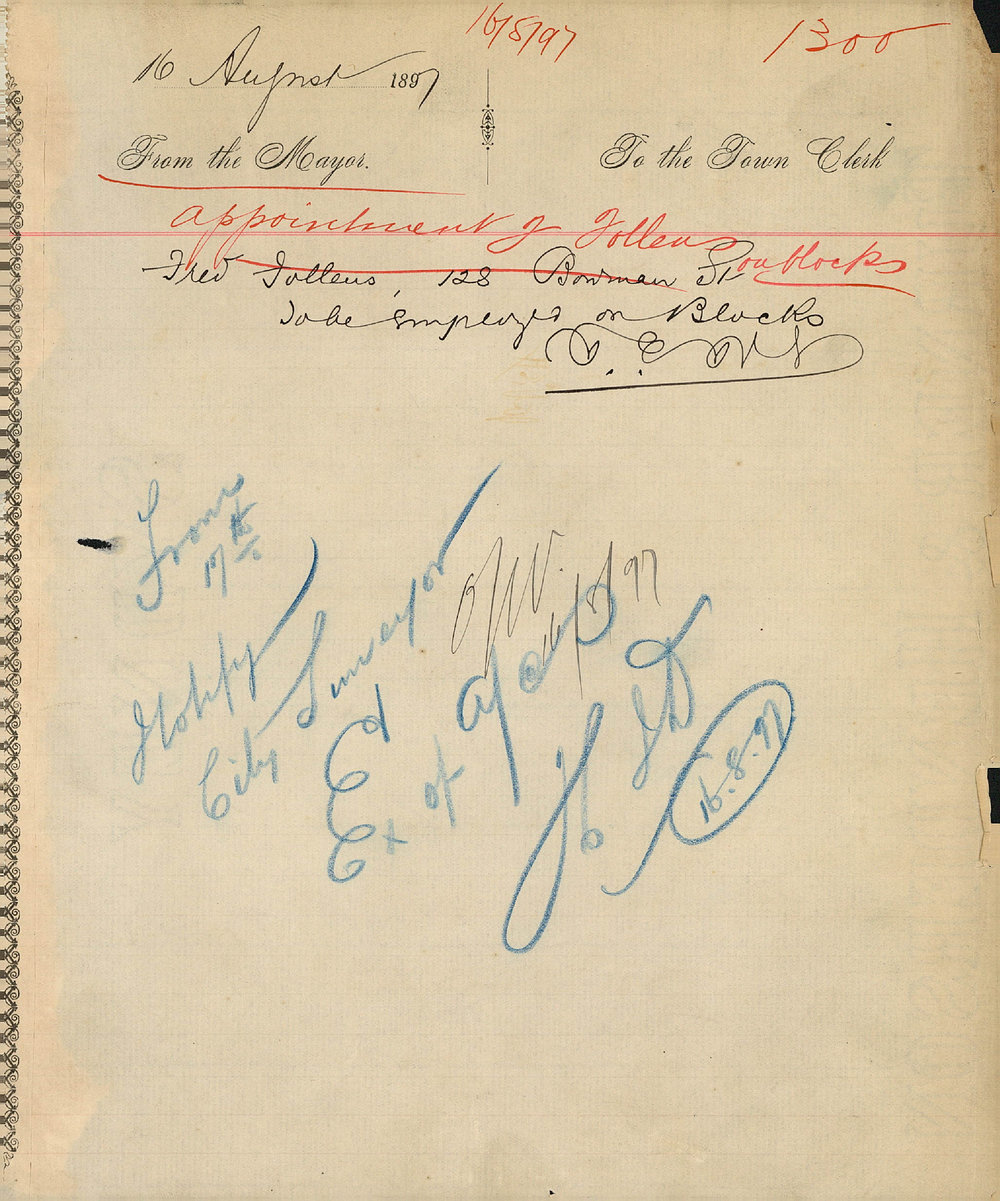 16/8/97
1300
16 August 1897
From the Mayor.
To the Town Clerk
Appointment of Follens on blocks
Fred Follens, 128 Bowman St
To be employed on Blocks
From
17th
Notify
City Surveyor
Ex of
16/8/97
16.8.97